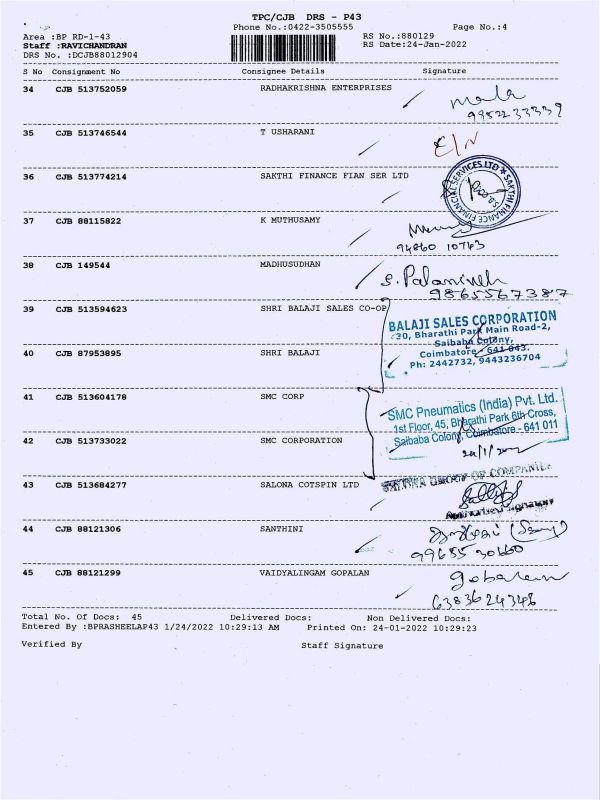 TPC/CJB DRS - P43
Phone No.:0422-3505555 Page No.:4
Area :BP RD-1-43 RS No.:880129
Staff :RAVICHANDRAN RS Date:24-Jan-2022
DRS No. :DCJB88012904
S No Consignment No Consignee Details Signature
34 CJB 513752059 RADHAKRISHNA ENTERPRISES
mala
9952233339
35 CJB 513746544 T USHARANI
36 CJB 513774214 SAKTHI FINANCE FIAN SER LTD
SAKTHI FINANCE FINANCIAL SERVICES LTD
37 CJB 88115822 K MUTHUSAMY
94860 10743
38 CJB 149544 MADHUSUDHAN
9865567387
39 CJB 513594623 SHRI BALAJI SALES CO-OP
BALAJI SALES CORPORATION
30, Bharathi Park Main Road-2,
Saibaba Colony,
Coimbatore - 641 043.
Ph: 2442732, 9443236704
40 CJB 87953895 SHRI BALAJI
41 CJB 513604178 SMC CORP
SMC Pneumatics (India) Pvt. Ltd.
1st Floor, 45, Bharathi Park 6th Cross,
Saibaba Colony, Coimbatore - 641 011
42 CJB 513733022 SMC CORPORATION
43 CJB 513684277 SALONA COTSPIN LTD
GROUP OF COMPANIES
Authorised Signatory
44 CJB 88121306 SANTHINI
99655 30660
45 CJB 88121299 VAIDYALINGAM GOPALAN
6383624348
Total No. Of Docs: 45 Delivered Docs: Non Delivered Docs:
Entered By :BPRASHEELAP43 1/24/2022 10:29:13 AM Printed On: 24-01-2022 10:29:23
Verified By Staff Signature